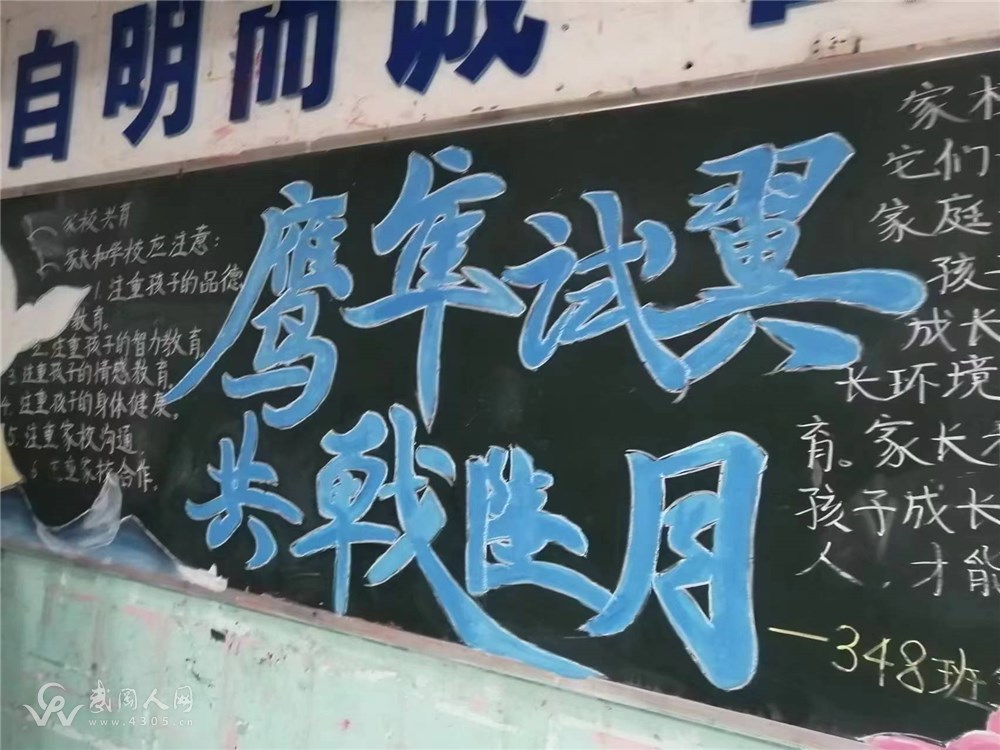 自明而诚
家校共育
家长和学校应注意:
1.注重孩子的品德
教育。
2.注重孩子的智力教育。
3.注重孩子的情感教育。
4.注重孩子的身体健康。
5.注重家校沟通
6.注重家校合作。
鹰隼试翼
共戰 月
家校
它们
家庭
孩子
成长
长环境
育。家长
孩子成长
人,才能
—348班
武岡人网
www.4305.cn